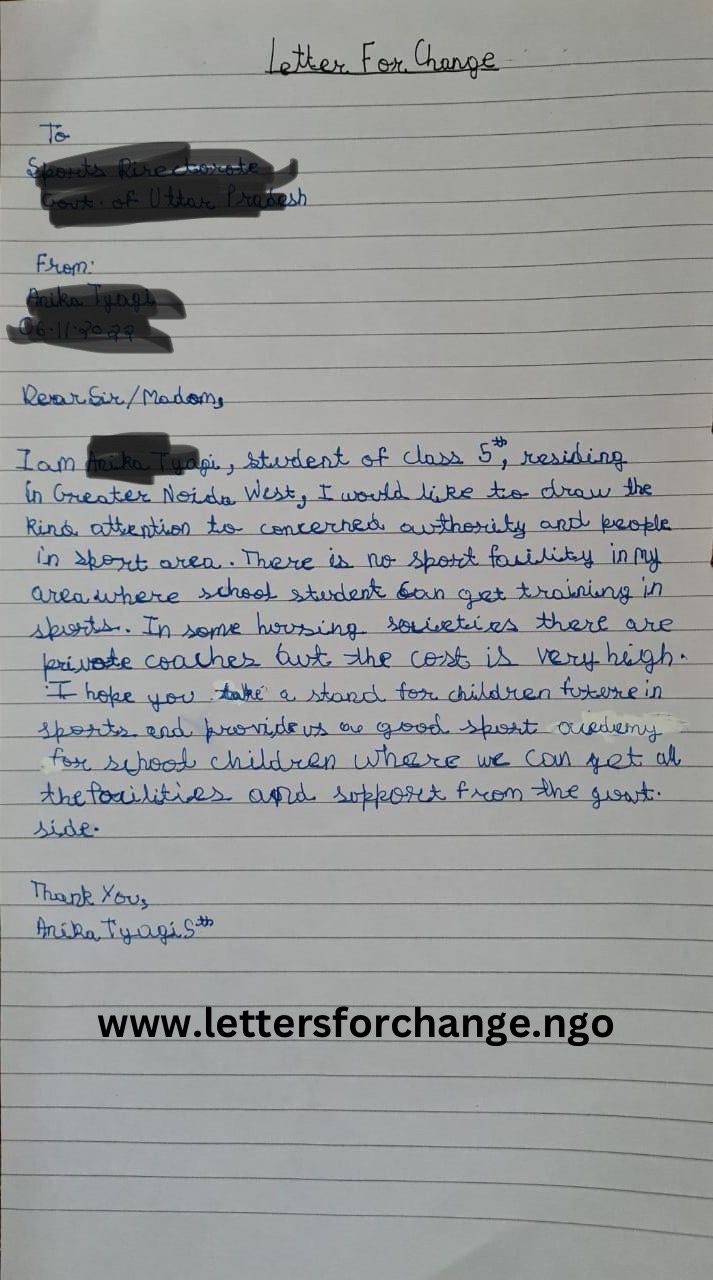 Letter For Change
To
From:
Dear Sir/Madam,
I am , student of class 5th, residing
in Greater Noida West, I would like to draw the
kind attention to concerned authority and people
in sport area. There is no sport facility in my
area where school student can get training in
sports. In some housing societies there are
private coaches but the cost is very heigh.
I hope you take a stand for children futere in
sports and provide us a good sport acedemy
for school children where we can get all
the facilities and support from the govt.
side.
Thank You,
Anika Tyagi 5th
www.lettersforchange.ngo